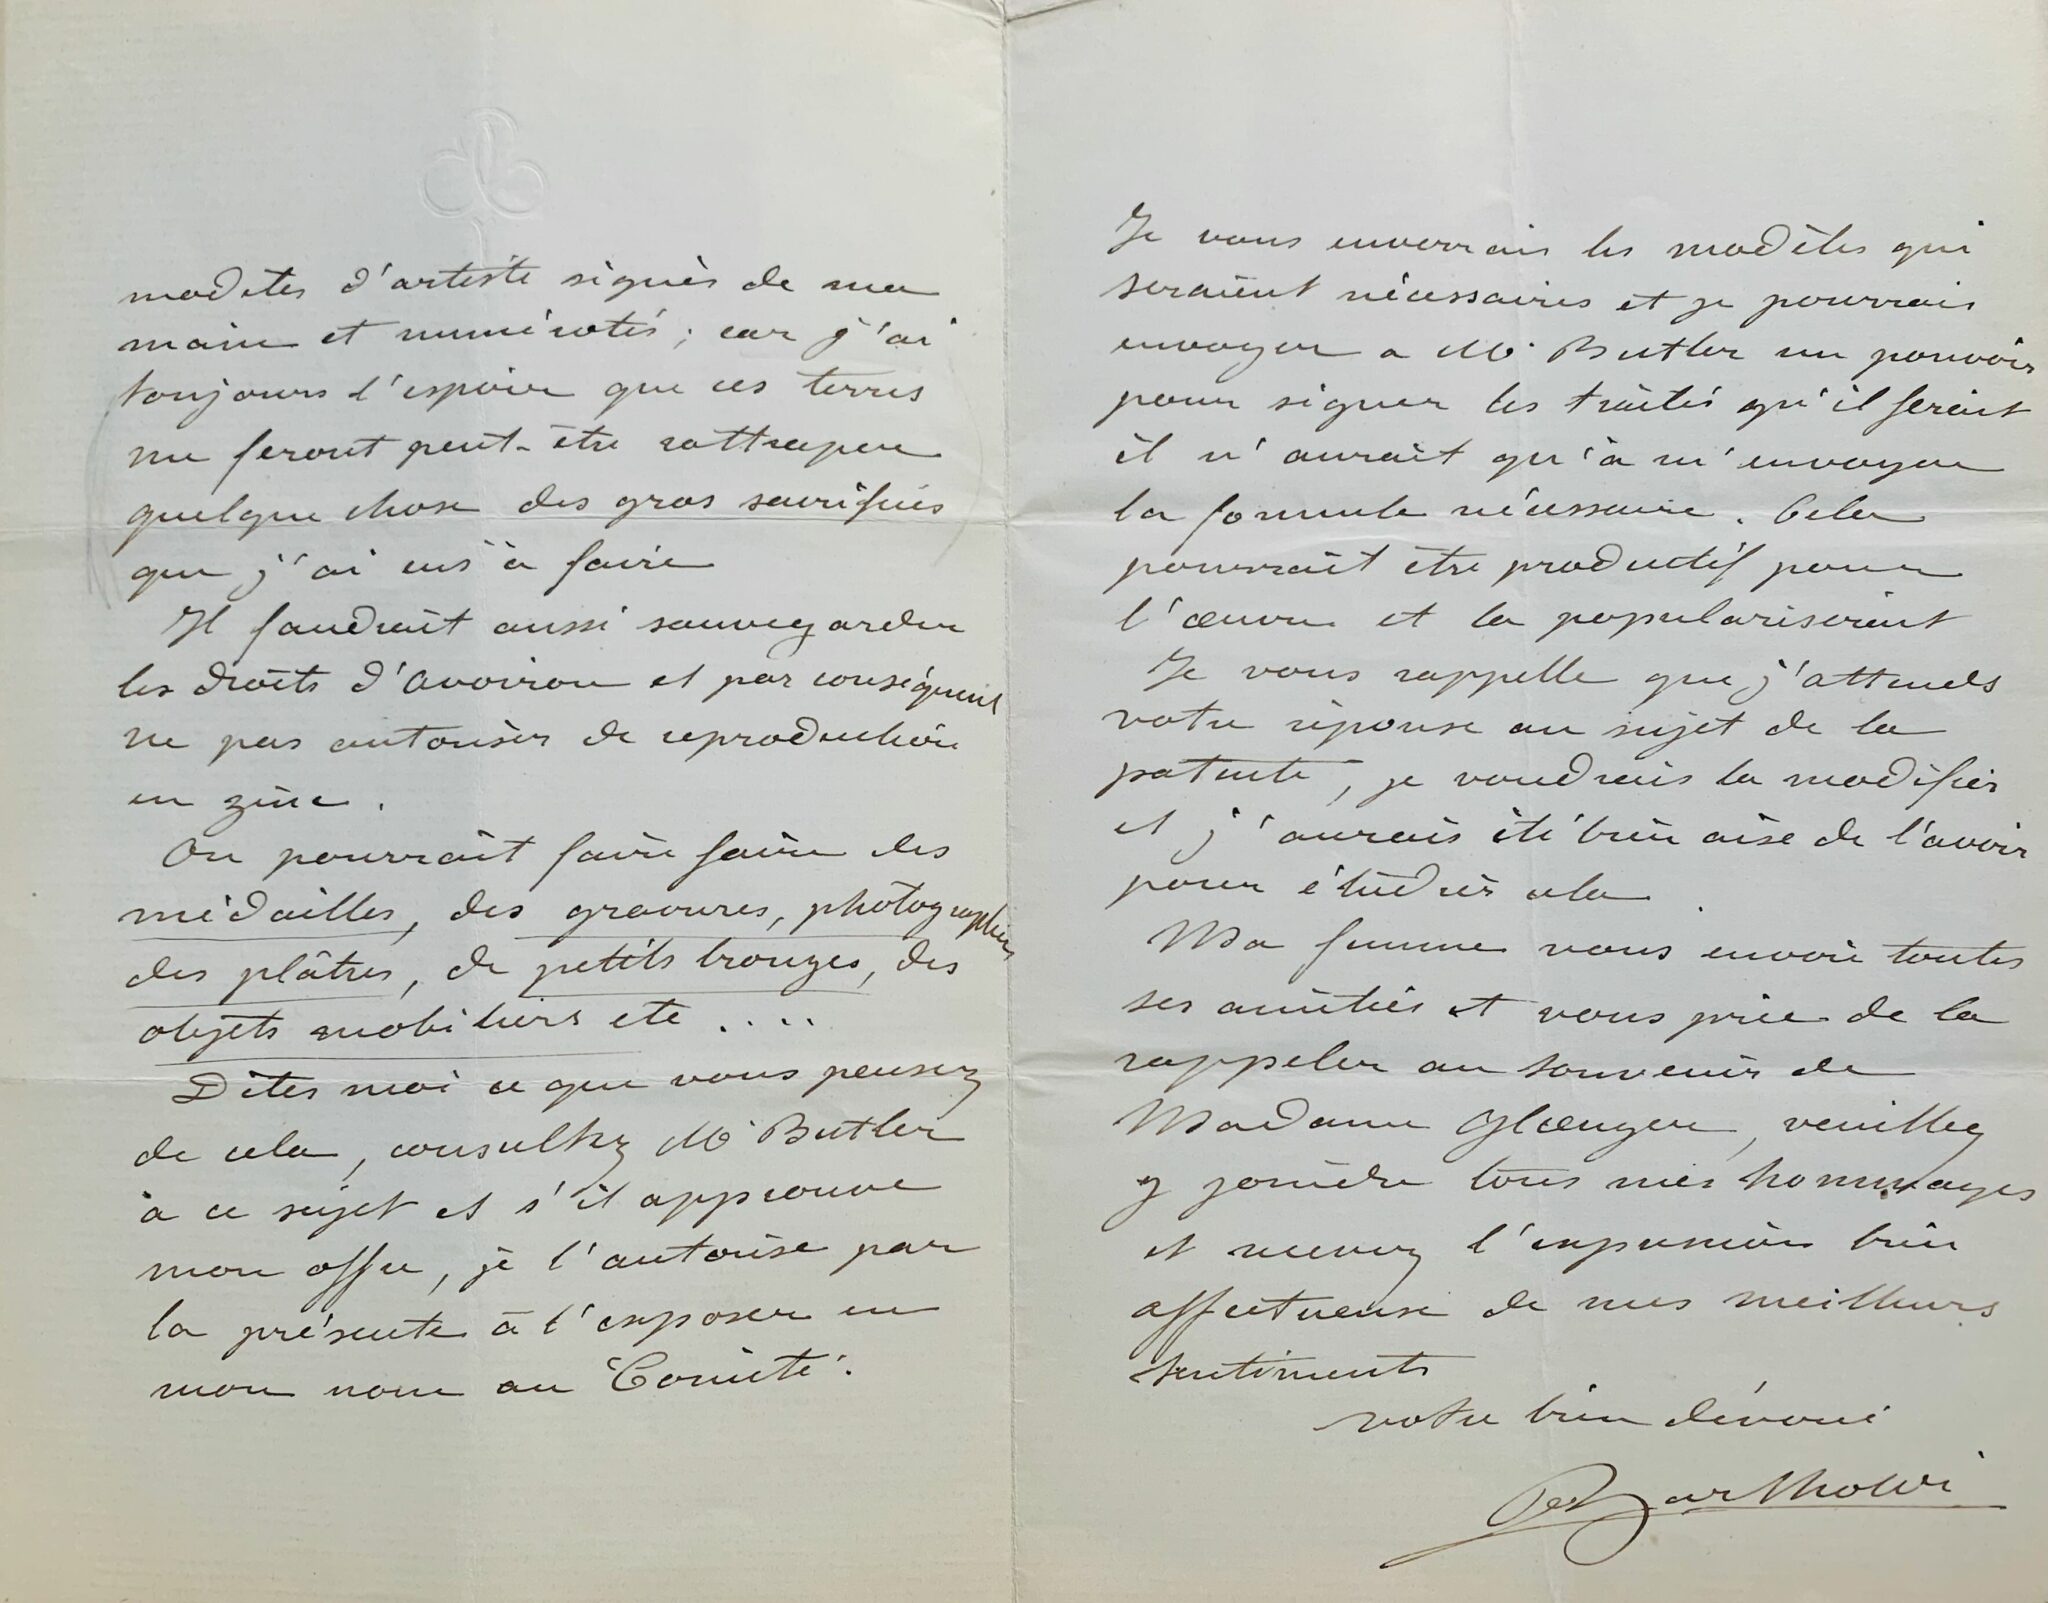 modèles d'artiste signés de ma
main et numérotés; car j'ai
toujours l'espoir que ces terres
me feront peut-être rattraper
quelque chose des gros sacrifices
que j'ai eus à faire
Il faudrait aussi sauvegarder
les droits d'Avoiron et par conséquent
ne pas autoriser de reproduction
en zinc.
On pourrait faire faire des
médailles, des gravures, photographies
des plâtres, de petits bronzes, des
objets mobiliers etc ....
Dites moi ce que vous pensez
de cela, consultez Mr Butler
à ce sujet et s'il approuve
mon offre, je l'autorise par
la présente à l'exposer en
mon nom au Comité.
Je vous enverrais les modèles qui
seraient nécessaires et je pourrais
envoyer a Mr Butler un pouvoir
pour signer les traités qu'il ferait
il n'aurait qu'à m'envoyer
la formule nécessaire. Cela
pourrait être productif pour
l'œuvre et la populariserait
Je vous rappelle que j'attends
votre réponse au sujet de la
patente, je voudrais la modifier
et j'aurais été bien aise de l'avoir
pour étudier cela.
Ma femme vous envoie toutes
ses amitiés et vous prie de la
rappeler au souvenir de
Madame Glaenzer, veuillez
y joindre tous mes hommages
et recevez l'expression bien
affectueuse de mes meilleurs
sentiments
votre bien dévoué
Bartholdi